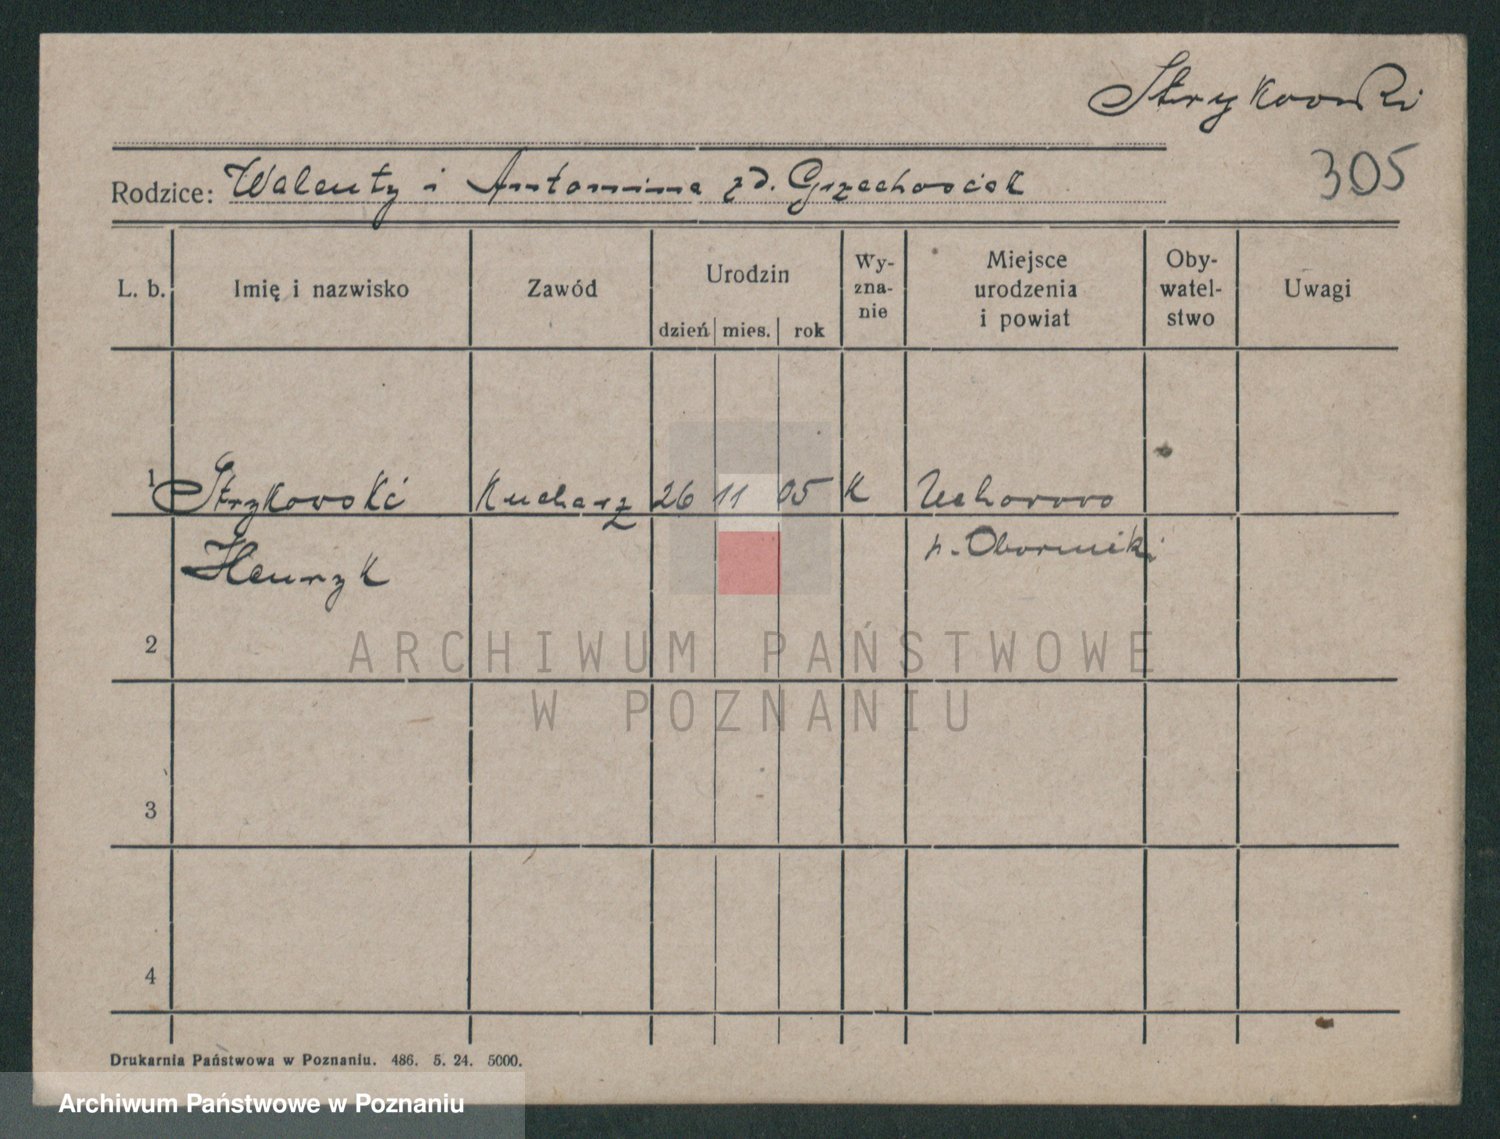 Strykowski
305
Rodzice: Walenty i Antonina zd. Grzechowiak
L. b. Imię i nazwisko Zawód Urodzin dzień mies. rok Wy- zna- nie Miejsce urodzenia i powiat Oby- watel- stwo Uwagi
1 Strykowski Kucharz 26 11 05 K Uchorowo
Henryk p. Oborniki
2
3
4
ARCHIWUM PAŃSTWOWE
W POZNANIU
Drukarnia Państwowa w Poznaniu. 486. 5. 24. 5000.
Archiwum Państwowe w Poznaniu